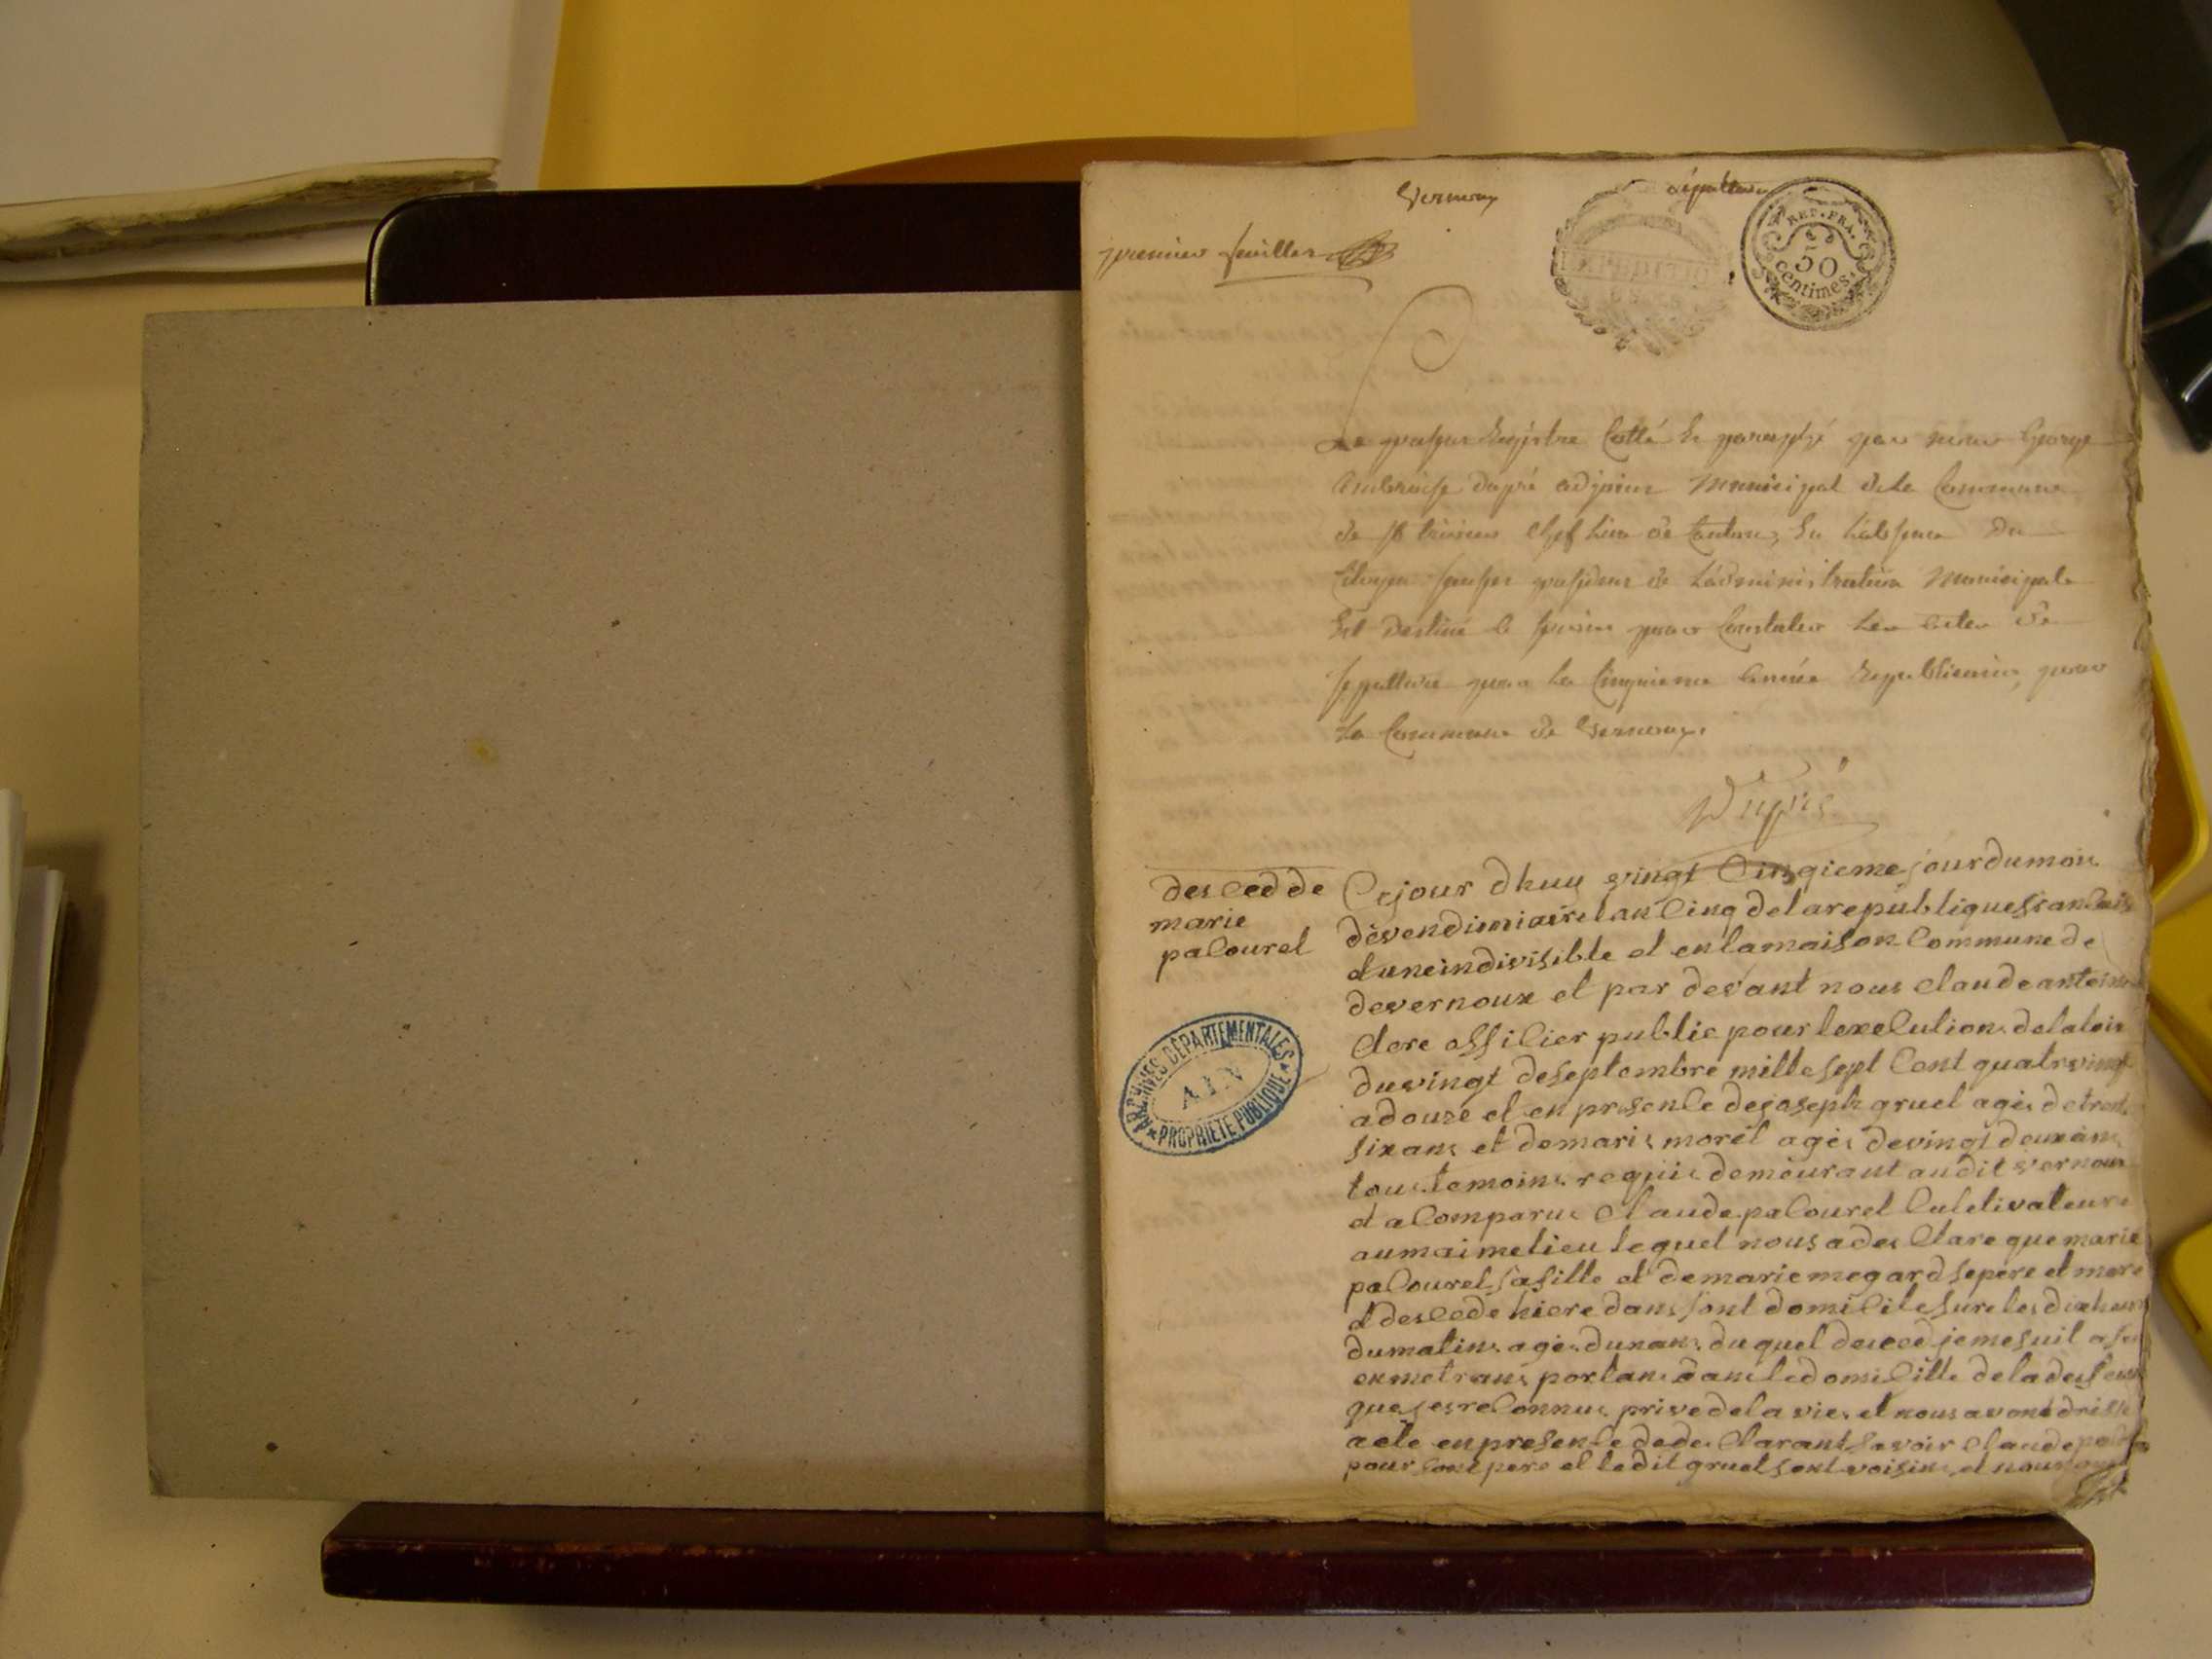 Vernoux
sépulture
premier feuillet
REP. FRA.
50
centimes.
Le présent Registre Cotté & paraphé par nous George
Ambroise Dupré adjoint Municipal de la Commune
de st trivier chef lieu de Canton, En L'absence Du
Citoyen président de L'administration Municipale
Est Destiné à servir pour Constater Les actes De
sepulture pour La Cinquieme année Republicaine, pour
La Commune de Vernoux.
Dupré
desced de
marie
pacouret
Cejour dhuy vingt Cinqieme jour du mois
devendimiaire lan Cinq de la republique francaise
et uneindivisible et en la maison Commune de
devernoux et par devant nous Claude antoine
Clere officier public pour lexecution de la loix
du vingt de septembre mille sept Cent quatrevingt
adouze et en presence de joseph gruel agés de trente
six ans et de maris morel agés de vingt deux ans
tous temoins requis demeurant audit vernoux
et a Comparue Claude pacouret Culetivateure
au maime lieu lequel nous a des Clare que marie
pacouret sa fille et de marie megard se pere et mere
et descede hiere dans sont domicile sure les dix heures
du matins agés dunans duquel desced je me suit
en me trans portans dans le domicille de la
que jes reconnus prive de la vie et nous avons drisse
acte en presence de de Clarant savoir Claude
pour sont pere et ledit gruel sont voisins et nous
ARCHIVES DÉPARTEMENTALES
AIN
PROPRIÉTÉ PUBLIQUE